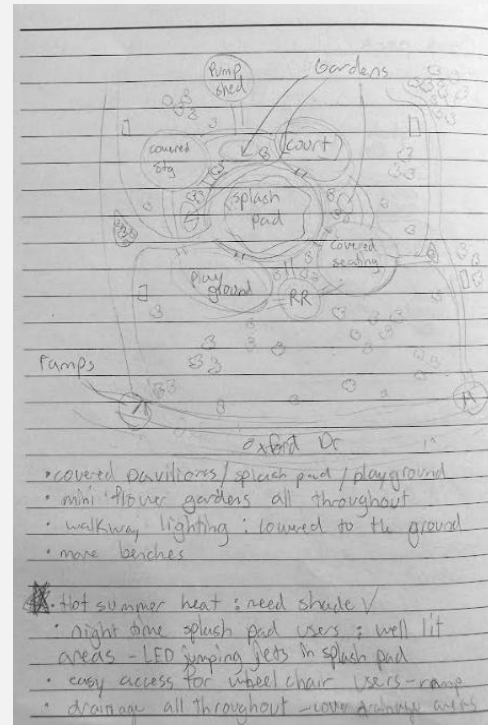 Pump
shed
Gardens
covered
stg
court
splash
pad
covered
seating
play
ground
RR
ramps
Oxford Dr
• covered pavilions / splash pad / playground
• mini flower gardens all throughout
• walkway lighting : lowered to the ground
• more benches
• Hot summer heat : need shade
• night time splash pad users : well lit
areas - LED jumping jets in splash pad
• easy access for wheel chair users - ramp
• drainage all throughout - cover drainage areas